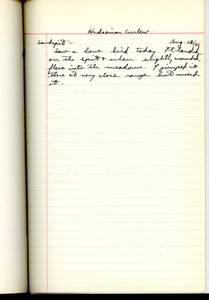 Hudsonian Curlew
Sandspit - Aug. 28
Saw a lone bird today. It landed
on the spit & when slightly wounded
flew into the meadows. I jumped it
there at very close range but missed
it.